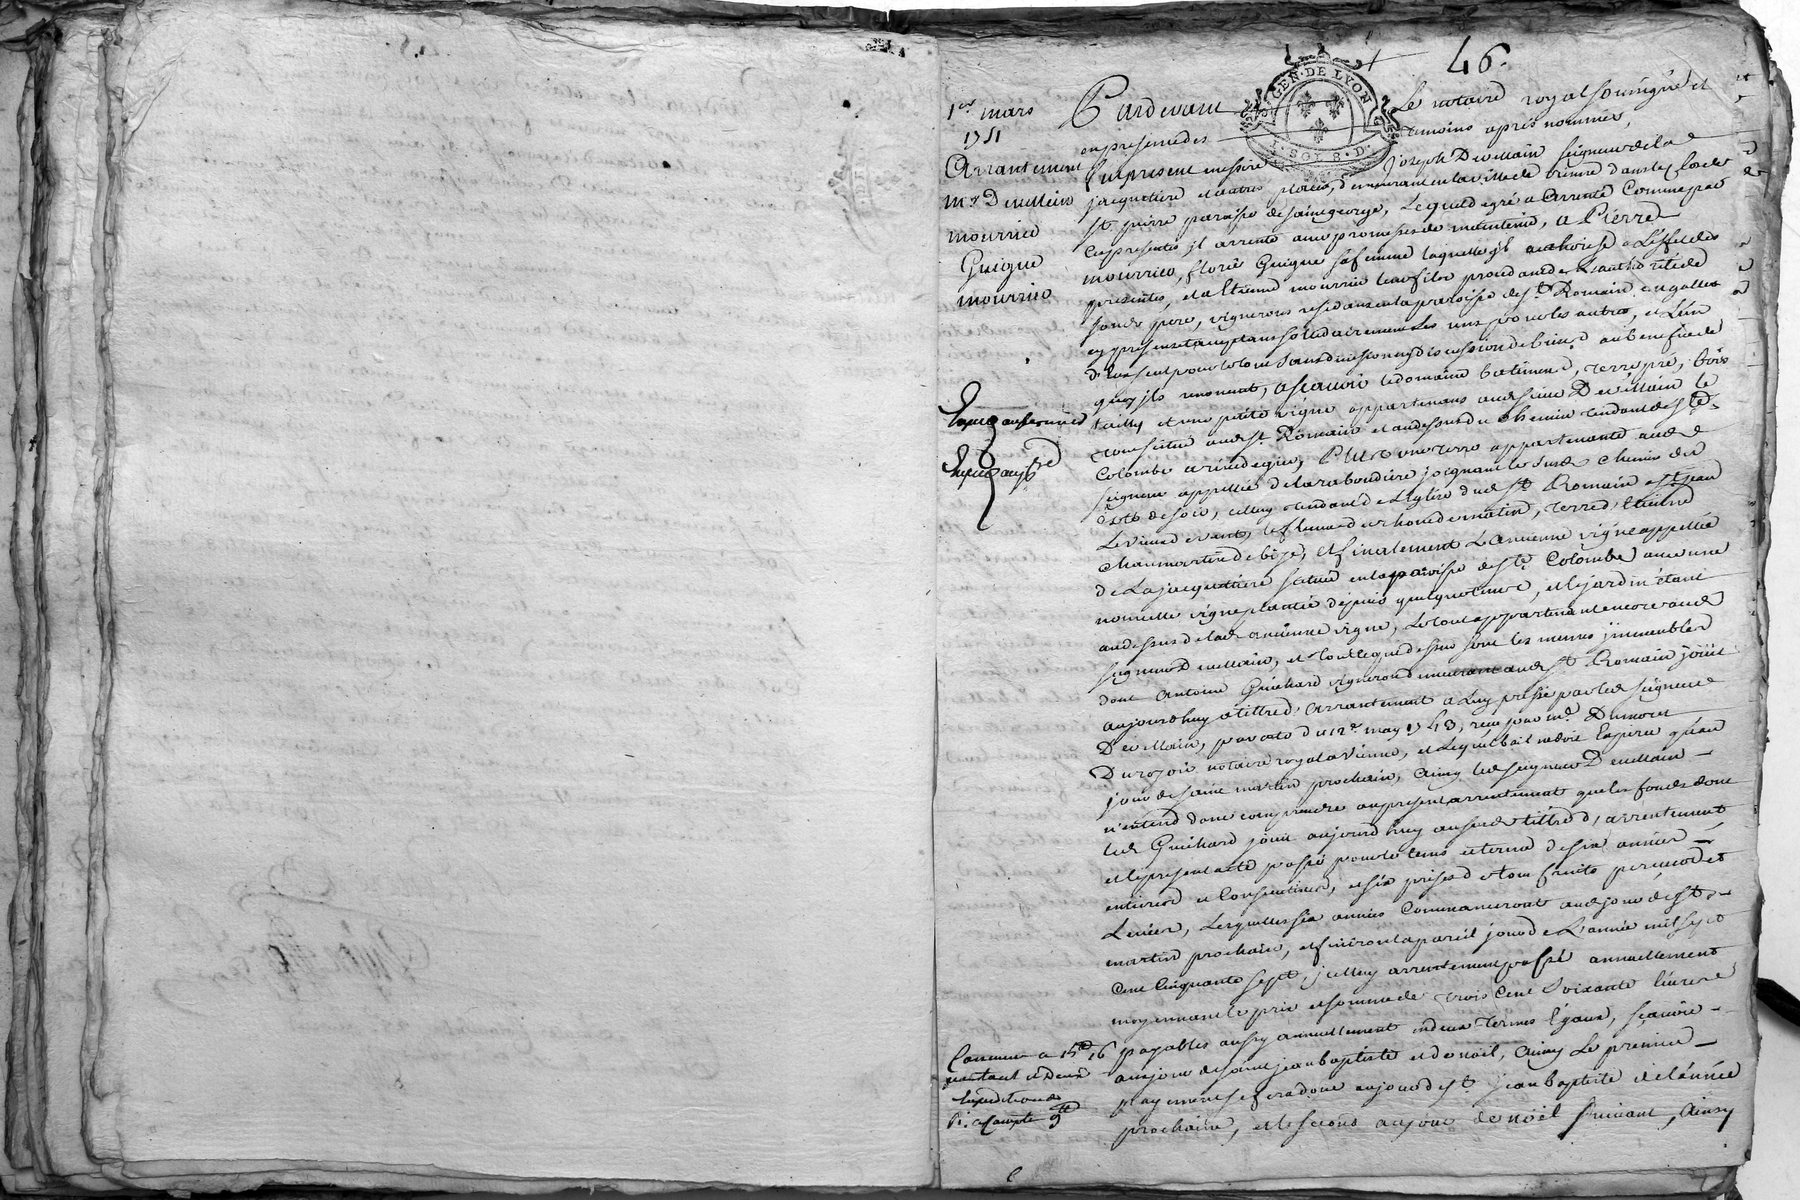 46.
GEN. DE LYON
1. SOL 8. D.
1er mars
1751
Arrantement
Mr Devillein
mourrier
Guigue
mourrier
Pardevant Le notaire royal soussigné et
en presence des temoins après nommés,
fut present messire Joseph Devillain seigneur de la
jacquetiere et autres places, demeurant en la ville de vienne dans la place de
st pierre paroisse de saint george, Lequel de gré a arrenté Comme par
ces presentes il arrente avec promesses de maintenir, a Pierre
mourrier, florie Guigue sa femme laquelle il authorise a L'effet des
presentes, et a Etienne mourrier leur fils procedant de L'authorité de
son d. pere, vignerons residans en la paroisse de st Romain en gallet
cy presents et acceptans solidairement les uns pour les autres, et L'un
d'eux seul pour le tout sans division ny discussion de biens au benefice de
quoy ils renoncent, a scavoir le domaine batiment, terre, pré, bois
taillis et une petite vigne appartenans aud. sieur Devillain le
tout situé aud. st Romain et au dessus du chemin tendant de ste
Colombe a rivedegier, Plus une terre appartenante aud.
seigneur appellée de la rabondiere joignant les susd. chemin du
coté de soir, celluy tendant de L'eglise dud. st Romain a st jean
de vent, le fleuve du rhone de matin, terre d'Etienne
Chaumartin de bize, et finalement L'ancienne vigne appellée
de La jacquetiere située en la paroisse de ste Colombe avec une
nouvelle vigne plantée depuis quelque tems, et le jardin étant
au dessus de lad. ancienne vigne, Le tout appartenant encore aud.
seigneur Devillain, et tout ce que dessus sont les memes jmmeubles
dont Antoine Guichard vigneron demeurant aud. st Romain joüit
aujourd'huy a tittre d'arrantement a Luy passé par led. seigneur
Devillain, par acte du 12e may 1743, reçu par me Dumort
Durozoir notaire royal a Vienne, et Lequel bail ne doit Expirer qu'au
jour de saint martin prochain, Ainsy led. seigneur Devillain
n'entend donc comprendre au present arrentement que les fonds dont
led. Guichard jouit aujourd'huy au susd. tittre d'arrentement
et le present acte passé pour le tems et terme de six années
entieres et Consecutives, et six prises et tous fruits percevoir et
Lever, Lesquelles six années Commanceront aud. jour de st
martin prochain, et finiront a pareil jour de L'année mil sept
cent Cinquante sept, jcelluy arrentement passé annuellement
moyennant le prix et somme de trois Cent Soixante livres
payables aussy annuellement en deux termes Egaux, sçavoir
au jour de saint jean baptiste et de noël, Ainsy Le premier
payement se fera donc au jour de st jean baptiste de L'année
prochaine, et le second au jour de noël suivant, Ainsy